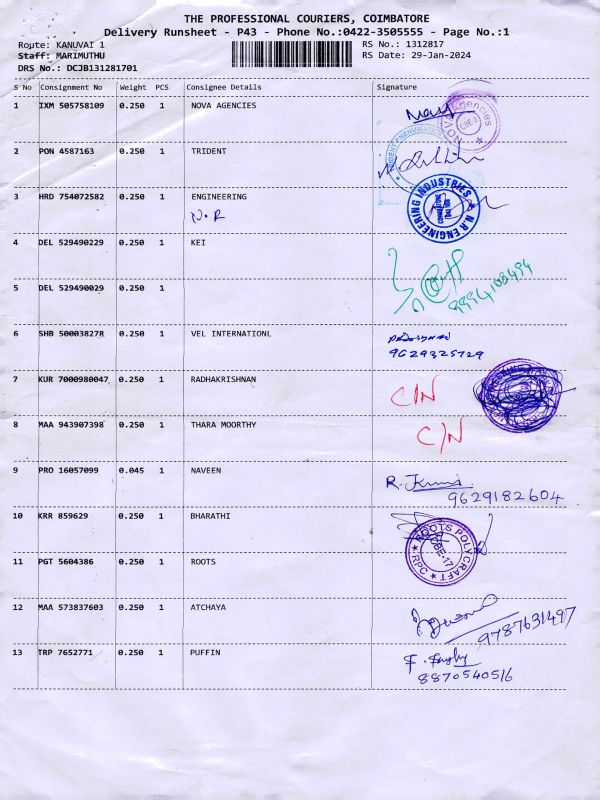 THE PROFESSIONAL COURIERS, COIMBATORE
Delivery Runsheet - P43 - Phone No.:0422-3505555 - Page No.:1
Route: KANUVAI 1 RS No.: 1312817
Staff: MARIMUTHU RS Date: 29-Jan-2024
DRS No.: DCJB131281701
S No Consignment No Weight PCS Consignee Details Signature
1 IXM 505758109 0.250 1 NOVA AGENCIES
2 PON 4587163 0.250 1 TRIDENT
3 HRD 754072582 0.250 1 ENGINEERING
N.R
N.R ENGINEERING INDUSTRIES
4 DEL 529490229 0.250 1 KEI
5 DEL 529490029 0.250 1
9994108494
6 SHB 500038278 0.250 1 VEL INTERNATIONL
9629325729
7 KUR 7000980047 0.250 1 RADHAKRISHNAN C/N
8 MAA 943907398 0.250 1 THARA MOORTHY C/N
9 PRO 16057099 0.045 1 NAVEEN
9629182604
10 KRR 859629 0.250 1 BHARATHI
ROOTS POLYCRAFT
CBE-17
RPC
11 PGT 5604386 0.250 1 ROOTS
12 MAA 573837603 0.250 1 ATCHAYA
9787631497
13 TRP 7652771 0.250 1 PUFFIN
8870540516